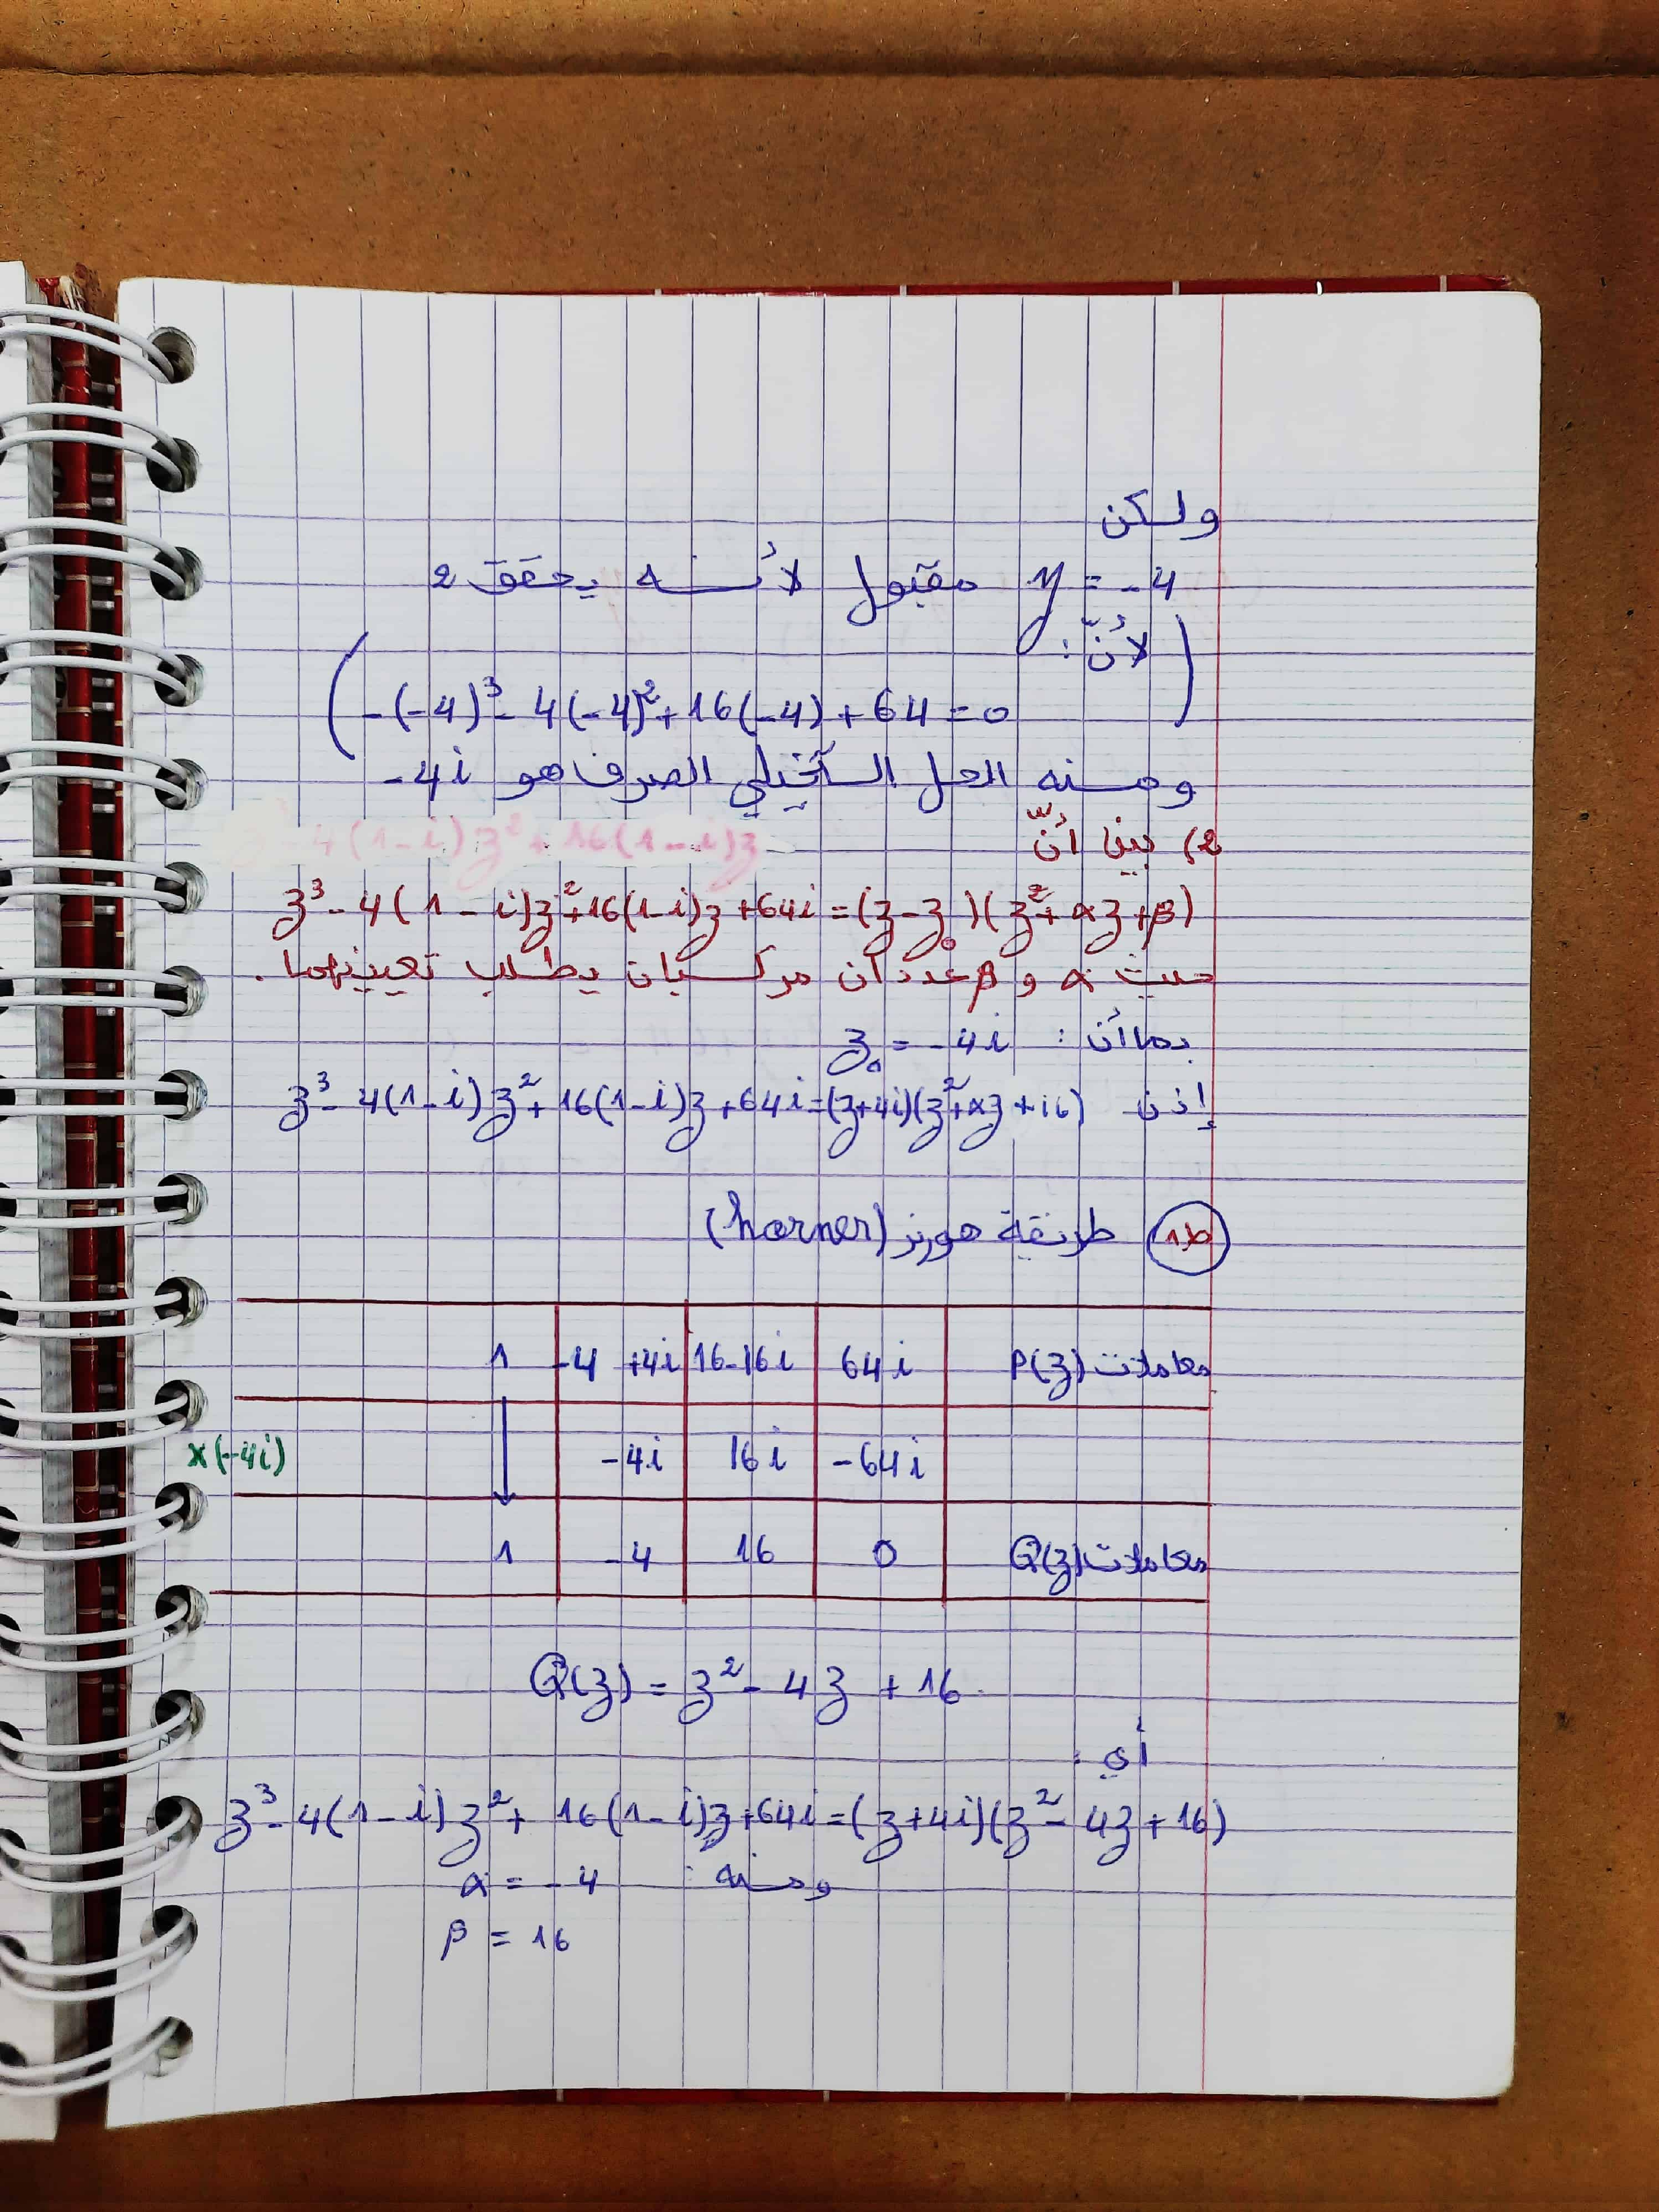 ولكن
y = -4 مقبول لأنه يحقق 2
لأنّ:
(-(-4)³ - 4(-4)² + 16(-4) + 64 = 0)
ومنه الحل التخيلي الصرف هو -4i
2) بين أنّ
z³ - 4(1-i)z² + 16(1-i)z
z³ - 4(1-i)z² + 16(1-i)z + 64i = (z - z₀)(z² + αz + β)
حيث α و β عددان مركبان يطلب تعيينهما.
بما أن: z₀ = -4i
إذن z³ - 4(1-i)z² + 16(1-i)z + 64i = (z+4i)(z² + αz + 16)
ط1 طريقة هورنر (horner)
1 | -4 +4i | 16-16i | 64i | معاملات P(z)
x(-4i) | -4i | 16i | -64i
1 | -4 | 16 | 0 | معاملات Q(z)
Q(z) = z² - 4z + 16
أي:
z³ - 4(1-i)z² + 16(1-i)z + 64i = (z+4i)(z² - 4z + 16)
ومنه: α = -4
β = 16